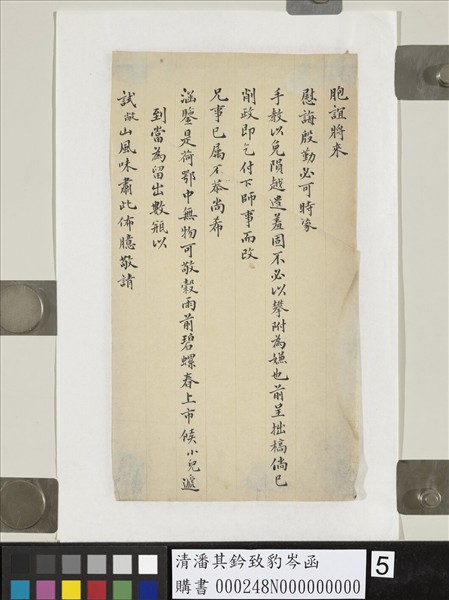 胞誼將來
慰誨殷勤必可時蒙
手教以免隕越遺羞固不必以攀附為嫌也前呈拙稿倘已
削政即乞付下師事而改
兄事已属不恭尚希
涵鑒是荷鄂中無物可敬穀雨前碧螺春上市候小兒遞
到當為留出數瓶以
試敝山風味肅此佈臆敬請
清潘其鈐致豹岑函
購書 000248N000000000
5